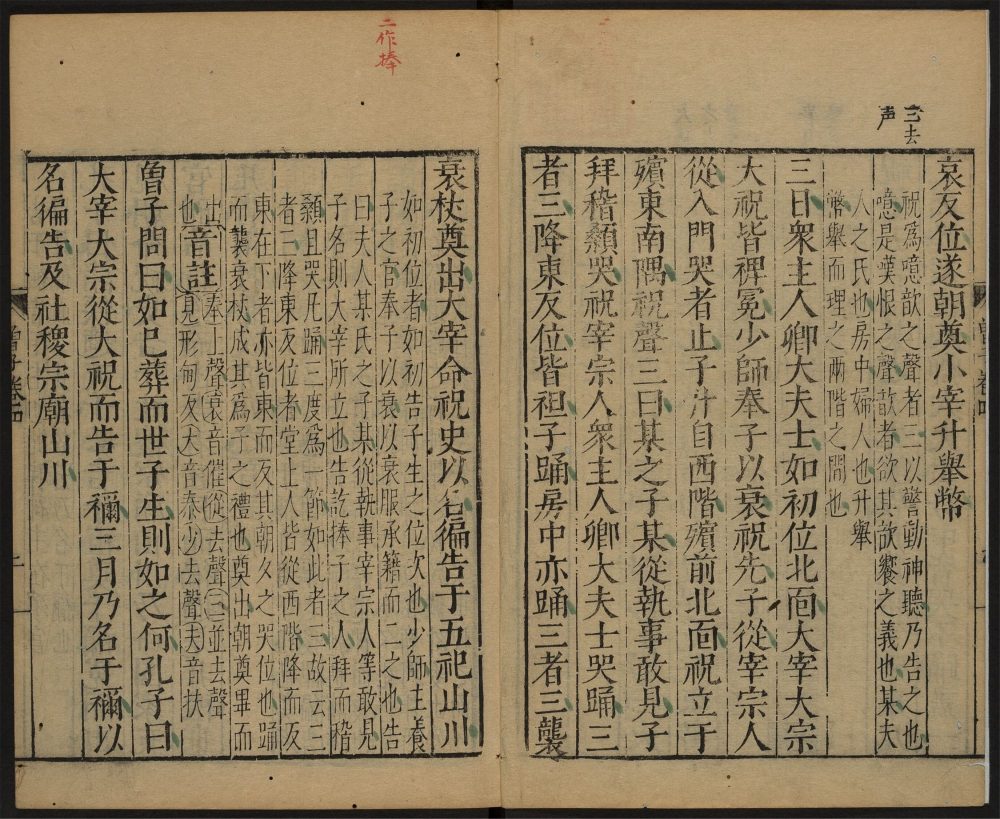 三去
声
哀反位遂朝奠小宰升舉幣
祝爲噫歆之聲者三以警動神聽乃告之也
噫是嘆恨之聲歆者欲其歆饗之義也某夫
人之氏也房中婦人也升舉
幣舉而理之兩階之間也
三日衆主人卿大夫士如初位北靣大宰大宗
大祝皆裨冕少師奉子以衰祝先子從宰宗人
從入門哭者止子升自西階殯前北靣祝立于
殯東南隅祝聲三曰某之子某從執事敢見子
拜稽顙哭祝宰宗人衆主人卿大夫士哭踊三
者三降東反位皆袒子踊房中亦踊三者三襲
二作捧
衰杖奠出大宰命祝史以名徧告于五祀山川
如初位者如初告子生之位次也少師主養
子之官奉子以衰以衰服承籍而二之也告
曰夫人某氏之子某從執事宰宗人等敢見
子名則大宰所立也告訖捧子之人拜而稽
顙且哭凡踊三度爲一節如此者三故云三
者三降東反位者堂上人皆從西階降而反
東在下者亦皆東而反其朝夕之哭位也踊
而襲衰杖成其爲子之禮也奠出朝奠畢而
出也音註奉上聲衰音催從去聲三並去聲
見形甸反大音泰少去聲夫音扶
曾子問曰如已葬而世子生則如之何孔子曰
大宰大宗從大祝而告于禰三月乃名于禰以
名徧告及社稷宗廟山川